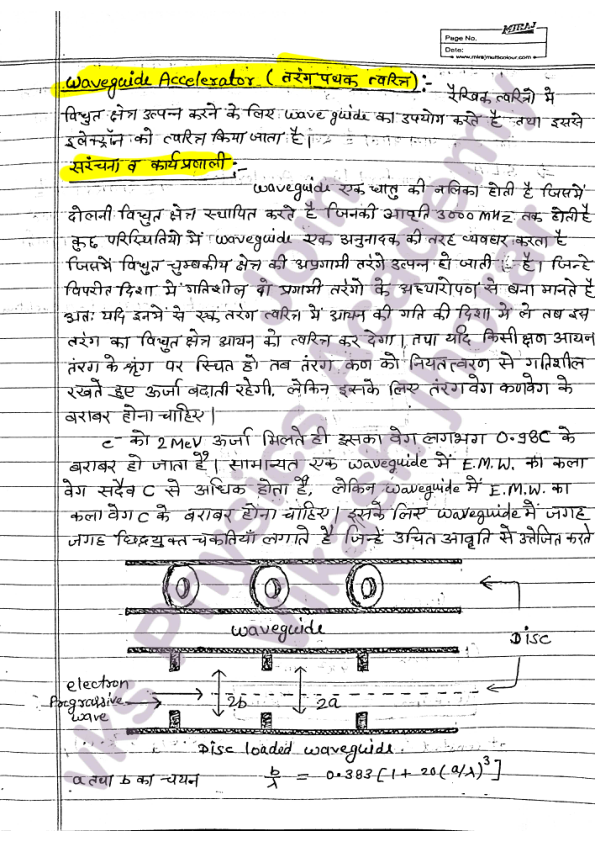 MIRAJ
Page No.
Date:
www.mirajmulticolour.com
Waveguide Accelerator ( तरंग पथक त्वरित्र) :-
रैखिक त्वरित्रो में
विधुत क्षेत्र उत्पन्न करने के लिए wave guide का उपयोग करते है तथा इससे
इलेक्ट्रॉन को त्वरित किया जाता है।
सरंचना व कार्यप्रणाली :-
waveguide एक धातु की नलिका होती है जिसमें
दोलनी विधुत क्षेत्र स्थापित करते है जिनकी आवृति 3000 MHz तक होती है
कुछ परिस्थितियो में waveguide एक अनुनादक की तरह व्यवहार करता है
जिसमें विधुत चुम्बकीय क्षेत्र की अप्रगामी तरंगे उत्पन्न हो जाती है। जिन्हे
विपरीत दिशा में गतिशील दो प्रगामी तरंगो के अध्यारोपण से बना मानते है
अतः यदि इनमे से एक तरंग त्वरित्र में आयन की गति की दिशा में ले तब इस
तरंग का विधुत क्षेत्र आयन को त्वरित कर देगा। तथा यदि किसी क्षण आयन
तंरग के श्रृंग पर स्थित हो तब तंरग, कण को नियत त्वरण से गतिशील
रखते हुए ऊर्जा बढाती रहेगी, लेकिन इसके लिए तंरग वेग कणवेग के
बराबर होना चाहिए।
e⁻ को 2 MeV ऊर्जा मिलते ही इसका वेग लगभग 0.98C के
बराबर हो जाता है। सामान्यत एक waveguide में E.M.W. का कला
वेग सदैव C से अधिक होता है, लेकिन waveguide में E.M.W. का
कला वेग C के बराबर होना चाहिए। इसके लिए waveguide में जगह
जगह छिद्रयुक्त चकतियाँ लगाते है जिन्हे उचित आवृति से उत्तेजित करते
waveguide
Disc
electron
Progressive
wave
2b
2a
Disc loaded waveguide.
a तथा b का चयन b/λ = 0.383 [1 + 20 (a/λ)³]
vks Physics Academy
Vikash Jhajhar